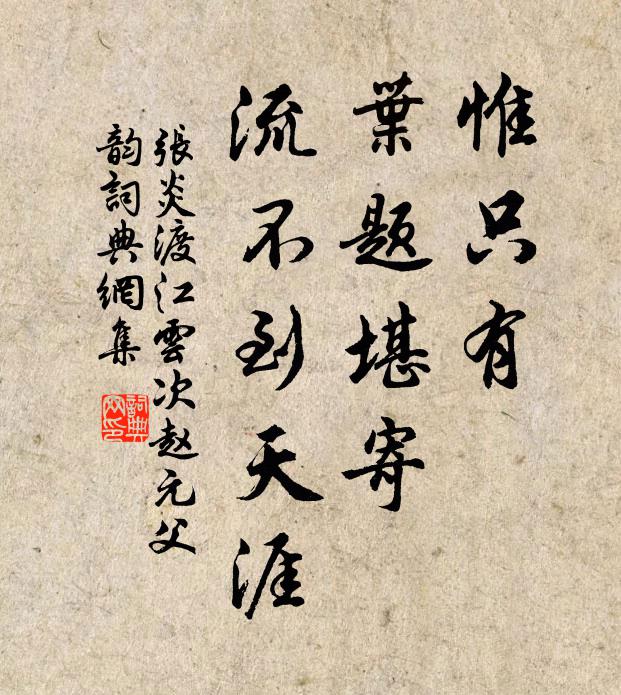 惟只有
葉題堪寄
流不到天涯
張炎渡江雲次赵元父
韵詞典網集
詞典网印